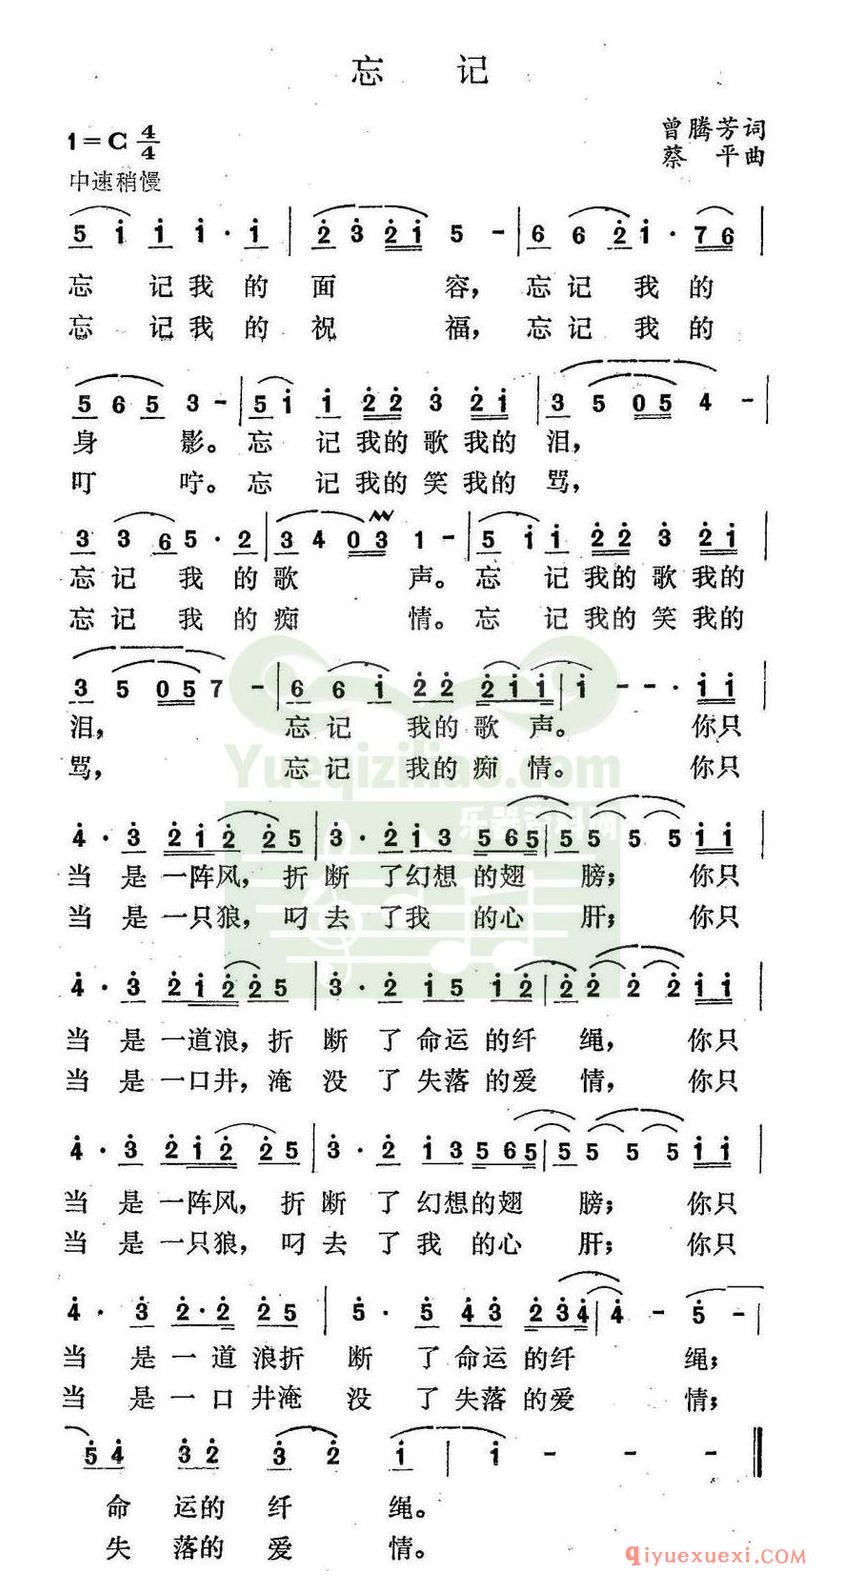 忘 记
1=C 4/4
曾腾芳词
蔡 平曲
中速稍慢
5 i i i · i | 2 3 2 i 5 - | 6 6 2 i · 7 6 |
忘 记我 的 面 容， 忘记 我 的
忘 记我 的 祝 福， 忘记 我 的
5 6 5 3 - | 5 i i 2 2 3 2 i | 3 5 0 5 4 - |
身 影。忘 记我的歌我的 泪，
叮 咛。忘 记我的笑我的 骂，
3 3 6 5 · 2 | 3 4 0 3 1 - | 5 i i 2 2 3 2 i |
忘记 我 的歌 声。忘 记我的歌我的
忘记 我 的痴 情。忘 记我的笑我的
3 5 0 5 7 - | 6 6 i 2 2 2 i i | i - - i i |
泪， 忘记 我的歌 声。 你只
骂， 忘记 我的痴 情。 你只
Yueqiziliao.com
乐器资料网
4 · 3 2 i 2 2 5 | 3 · 2 i 3 5 6 5 | 5 5 5 5 i i |
当 是一阵风，折断 了幻想的翅 膀；你只
当 是一只狼，叼去 了我 的心 肝；你只
4 · 3 2 i 2 2 5 | 3 · 2 2 i 5 i 2 | 2 2 2 2 i i |
当 是一道浪，折 断 了 命运的纤 绳，你只
当 是一口井，淹 没 了 失落的爱 情，你只
4 · 3 2 i 2 2 5 | 3 · 2 i 3 5 6 5 | 5 5 5 5 i i |
当 是一阵风，折 断 了 幻想的翅 膀；你只
当 是一只狼，叼 去 了 我 的心 肝；你只
4 · 3 2 · 2 2 5 | 5 · 5 4 3 2 3 4 | 4 - 5 - |
当 是一 道 浪折 断 了命运的纤 绳；
当 是一 口 井淹 没 了失落的爱 情；
5 4 3 2 3 2 i | i - - - ‖
命 运的 纤 绳。
失 落的 爱 情。
qiyuexuexi.com